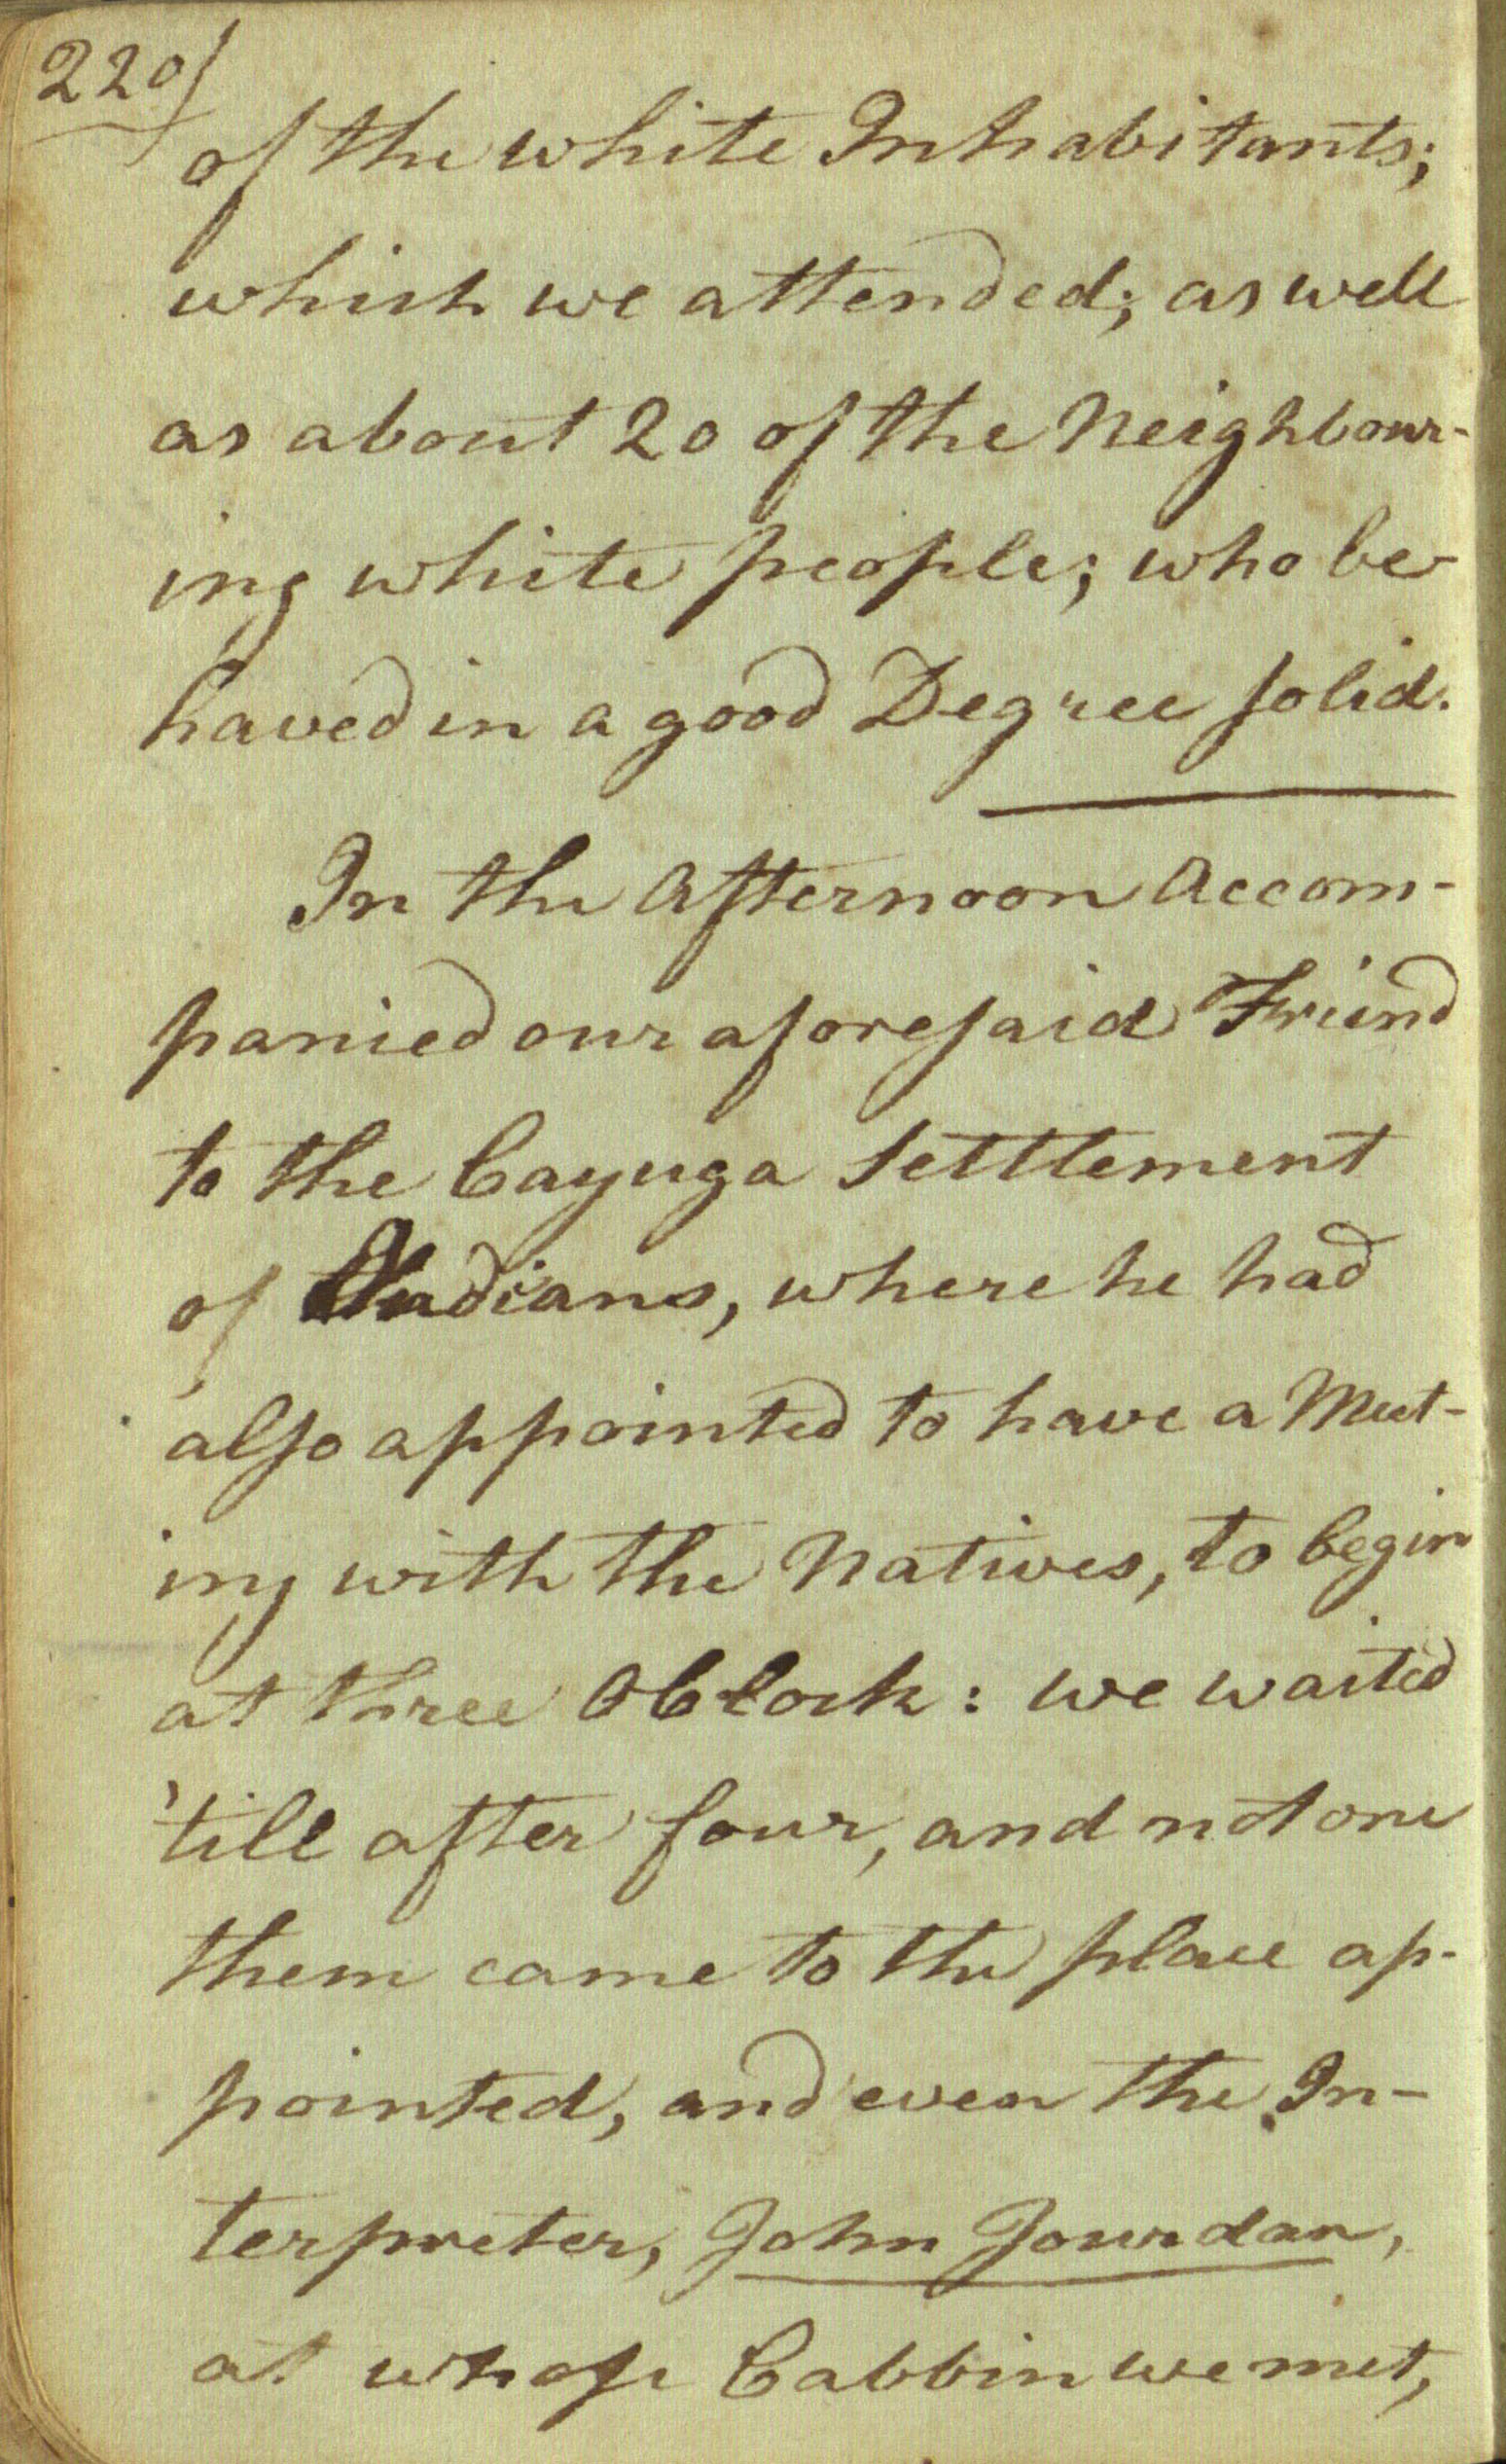 220/
of the white Inhabitants;
which we attended; as well
as about 20 of the Neighbour-
ing white people; who be-
haved in a good Degree solid.
In the Afternoon Accom-
panied our aforesaid Friend
to the Cayuga Settlement
of Indians, where he had
also appointed to have a Meet-
ing with the Natives, to begin
at three OClock: we waited
'till after four, and not one
them came to the place ap-
pointed, and even the In-
terpreter, John Jourdan,
at whose Cabbin we met,